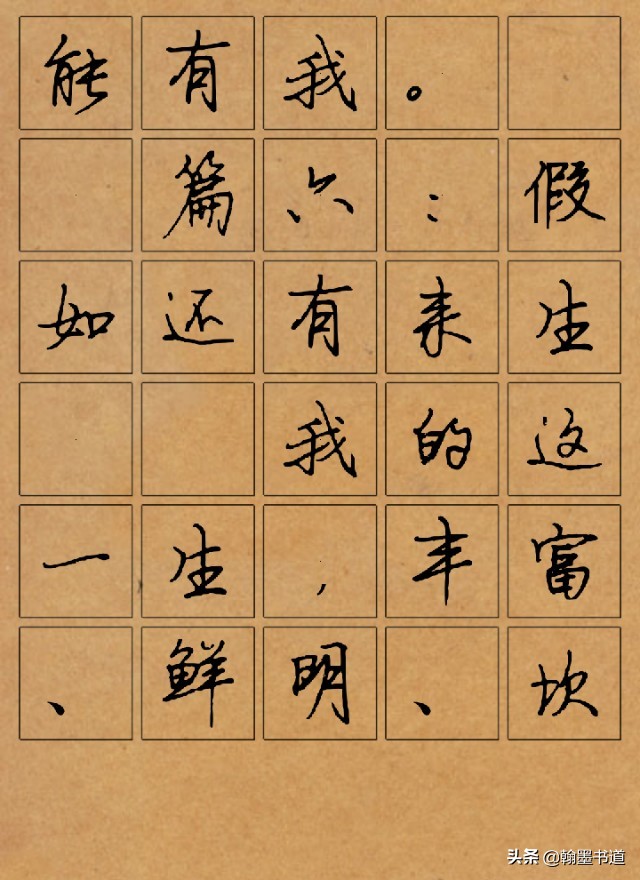 能有我。
篇六：假
如还有来生
我的这
一生，丰富
、鲜明、坎
头条 @翰墨书道